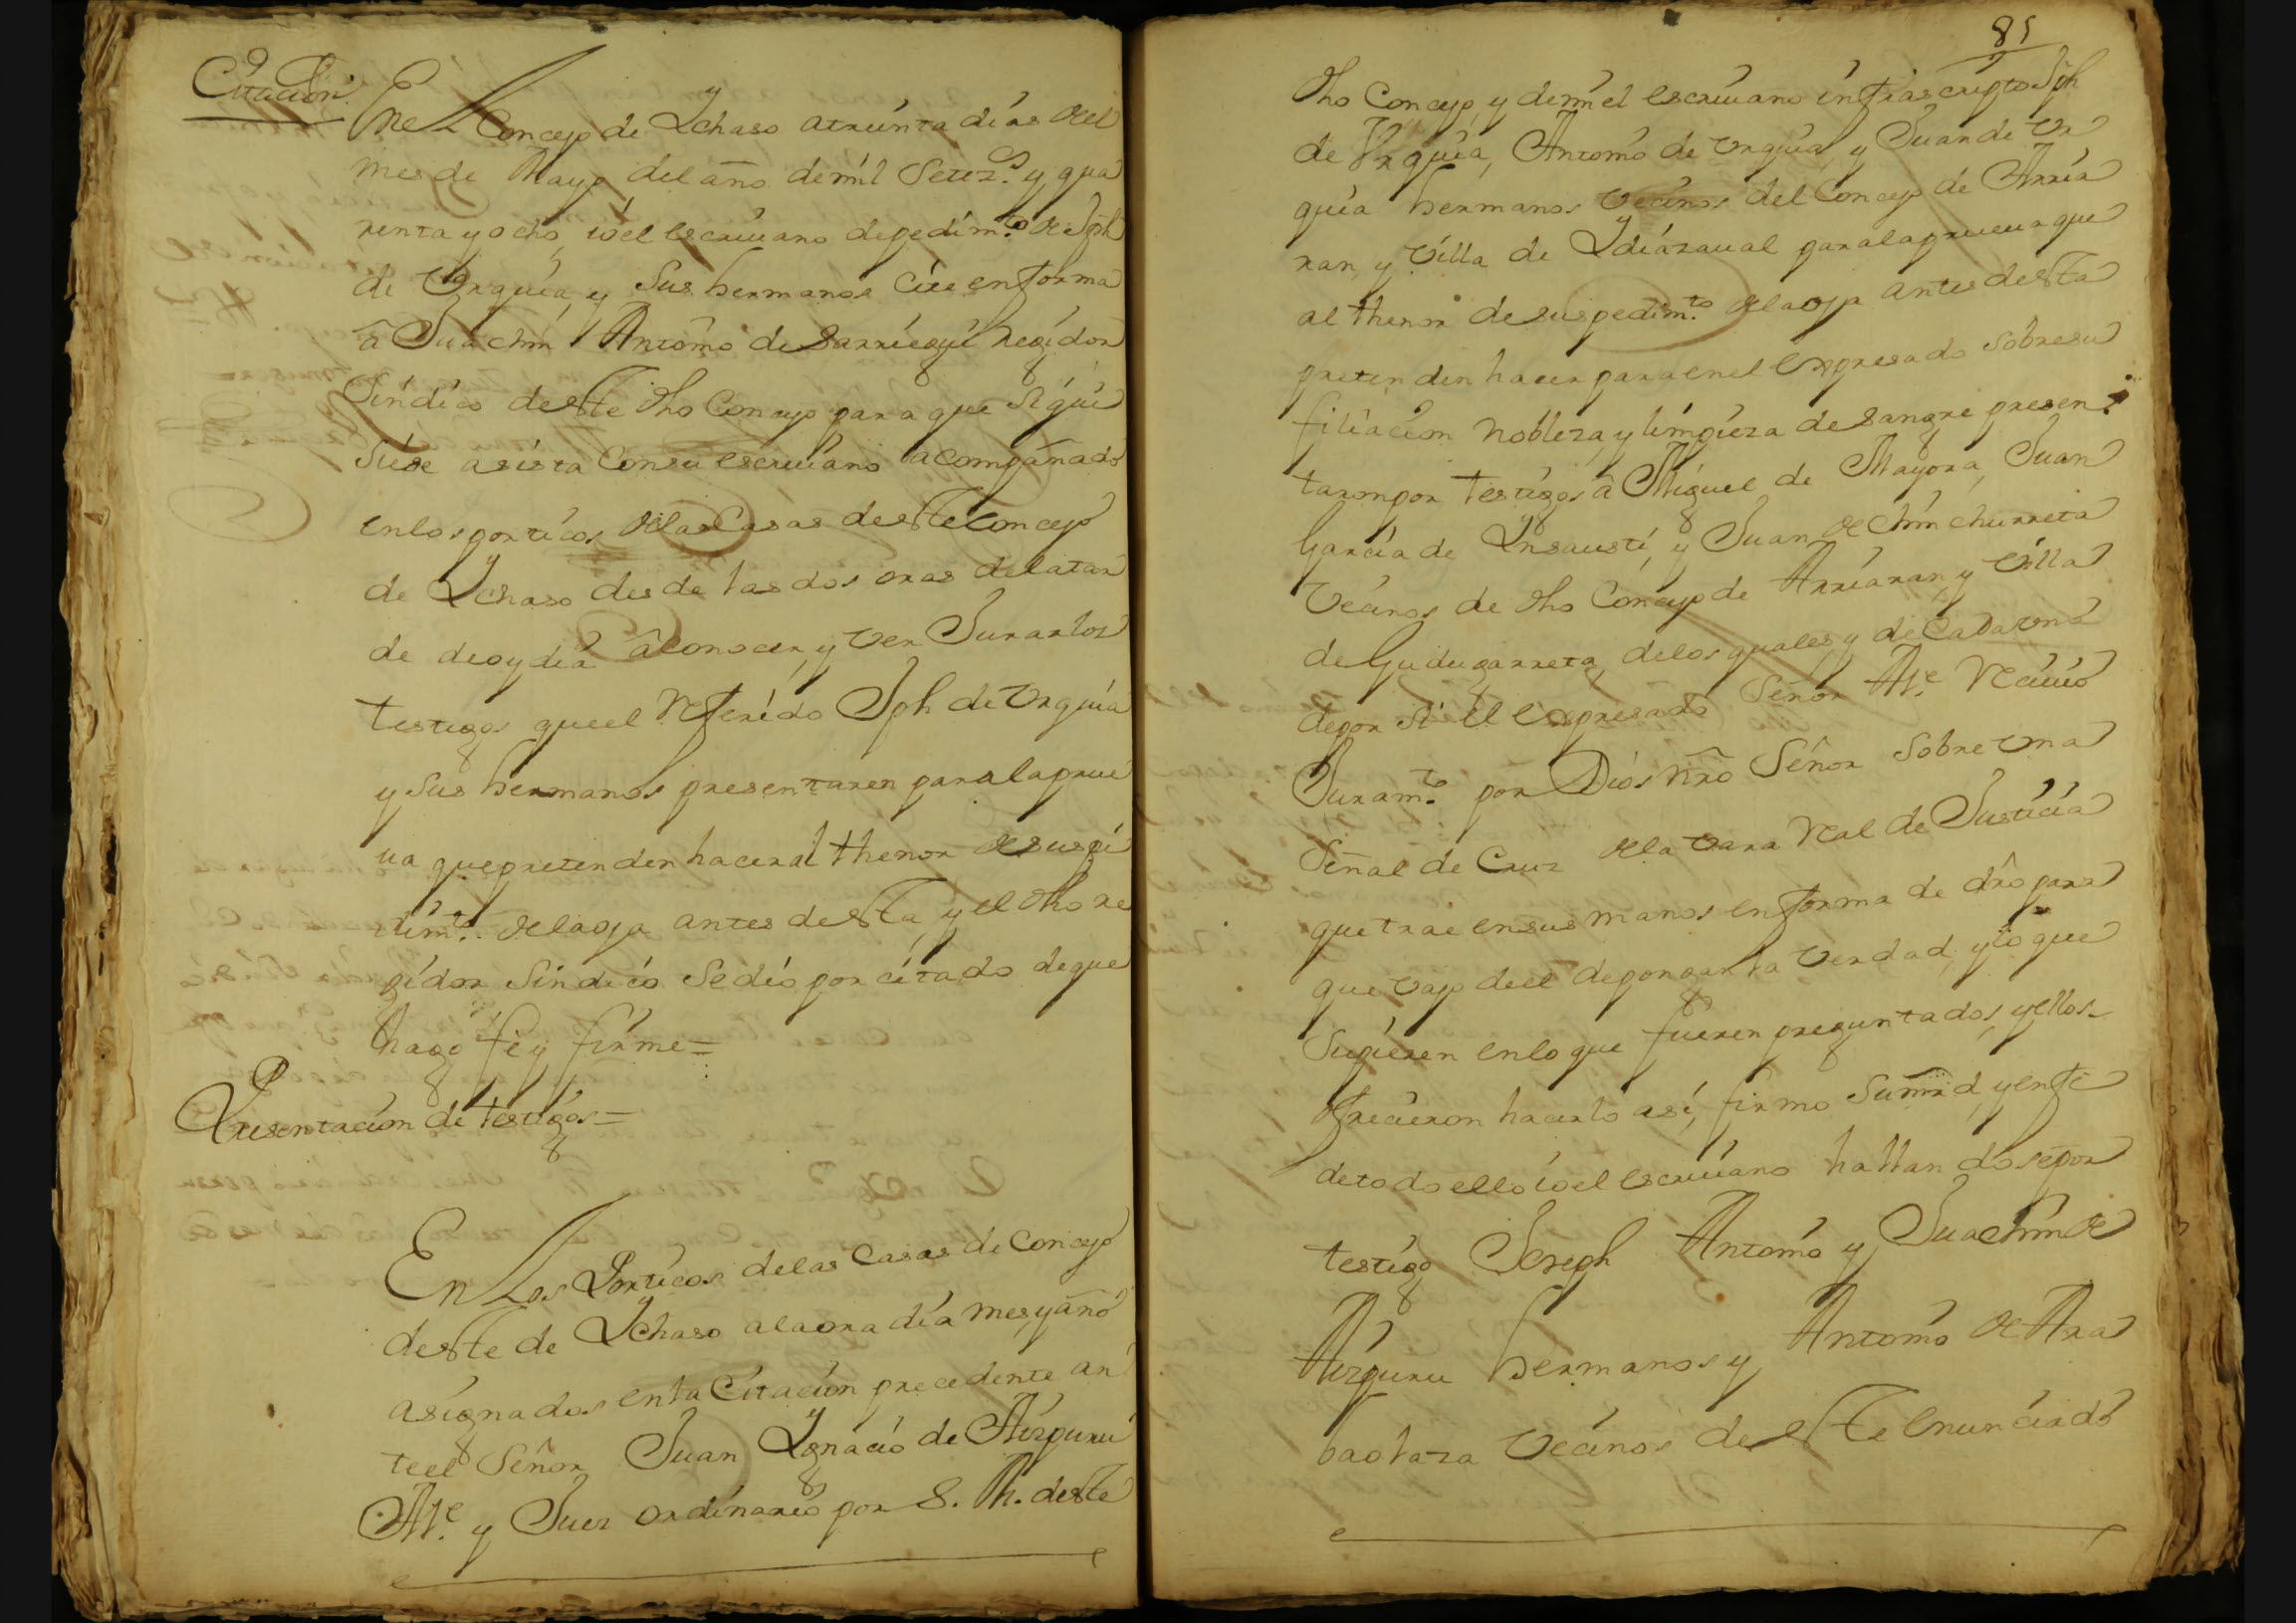 Citacion
En el Concejo de Ychaso atreinta dias del
mes de Mayo del año demil Setez.s y qua
renta y ocho, ioel escriuano depedim.to de Jph
de Vrquia, y Sus hermanos cite enforma
â Juachin Antonio de Sarriegui Regidor
Sindico deste dho Concejo para que Siqui
Siese asista Consu escriuano acompañado
enlosporticos delas Casas deste Concejo
de Ychaso desde las dos oras delatar
de deoydia âconocer, y ver Jurarlos
testigos queel Referido Jph de Vrquia
y Sus hermanos presentaren paralaprue
ua quepretenden haceral thenor desupe
dim.to delaoja antes desta, y el dho re
gidor Sindico Sedio por citado deque
hago fe y firme=
Presentacion de testigos=
En Los Porticos delas Casas de Concejo
deste de Ychaso alaora dia mesyaño
asignados enla Citacion precedente an
teel Señor Juan Ygnacio de Aizpuru
Al.e y Juez ordinario por S. M. deste
85
dho Concejo, y demi el escriuano infrascripto Jph
de Vrquia, Antonio de Vrquia, y Juan de Vr
quia hermanos vecinos del Concejo de Arria
ran, y Villa de Ydiazaual paralaprueua que
al thenor desuspedim.to delaoja antes desta
pretenden hacer paraenel expresado sobresu
filiacion nobleza, y limpieza desangre presen
taronpor testigos â Miguel de Mayora, Juan
Garcia de Ynsausti, y Juan de Chinchurreta
Vecinos de dho Concejo de Arriaran, y Villa
de Gudugarreta, delosquales, y de Cadauno
depor Si el expresado Señor Al.e Reciuio
Juram.to por Dios nro Señor Sobre vna
Señal de Cruz dela vara Real de Justicia
quetrae ensus manos enforma de dro para
que vajo deel depongan la verdad, ylo que
Supieren enlo que fueren preguntados, yellos
ofrecieron hacerlo asi, firmo Sumrd, yenfe
detodo ello ioel escriuano hallandosepor
testigo Joseph Antonio y Juachin de
Aizpuru hermanos y Antonio de Ara
baolaza vecinos de este enunciado